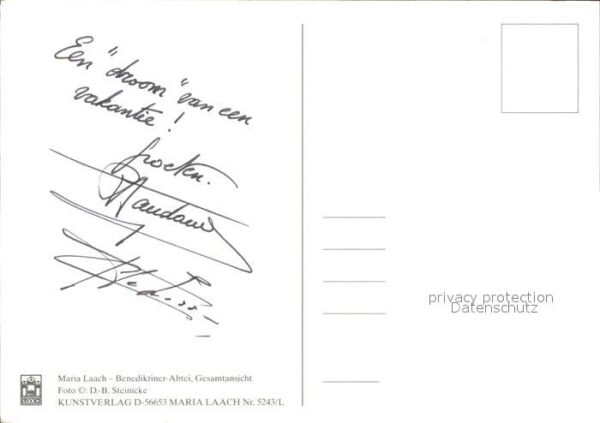 Een "droom" van een
vakantie!
Groeten.
privacy protection
Datenschutz
Maria Laach – Benediktiner-Abtei, Gesamtansicht
Foto ©: D.-B. Steinicke
KUNSTVERLAG D-56653 MARIA LAACH Nr. 5243/L